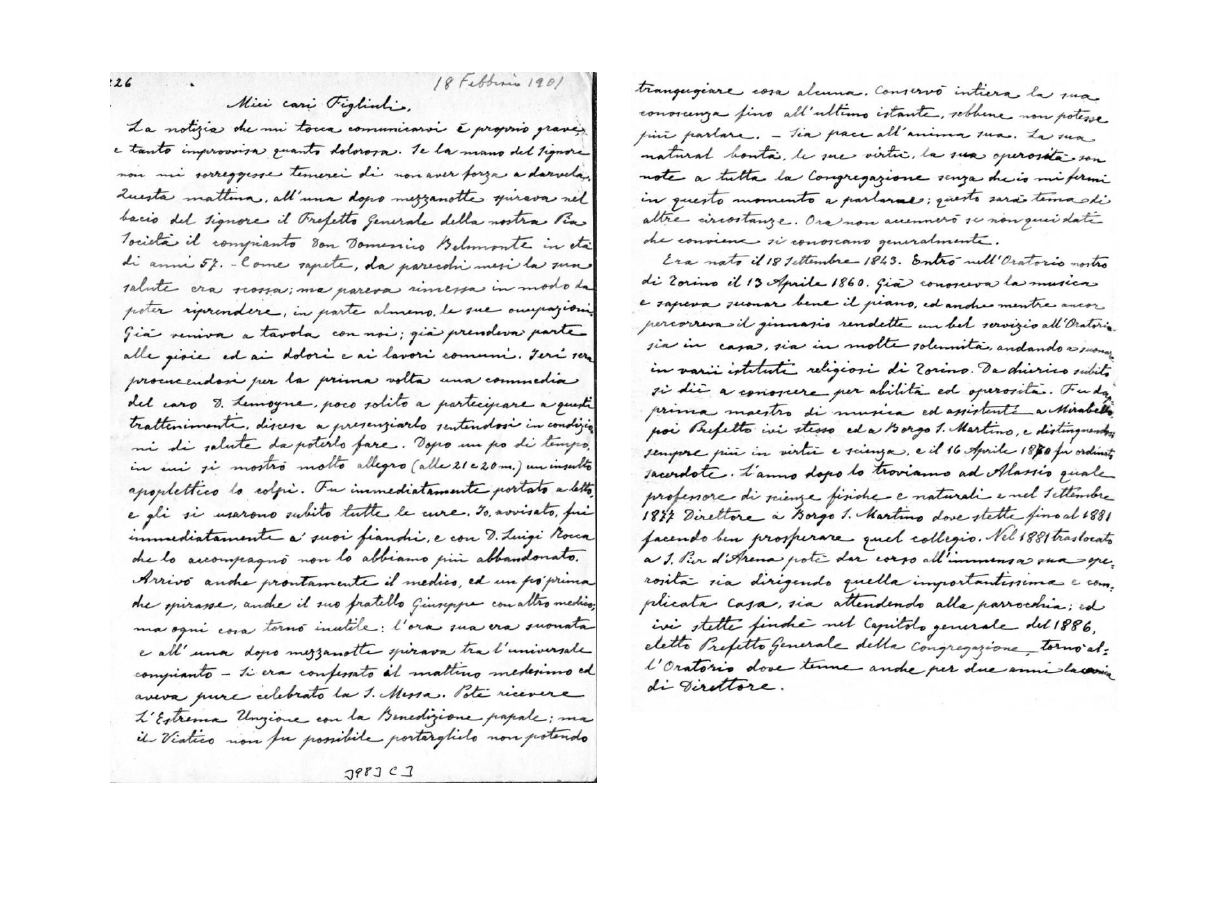 26
18 Febbraio 1901
Miei cari Figliuoli,
La notizia che mi tocca comunicarvi è proprio grave
e tanto improvvisa quanto dolorosa. Se la mano del Signore
non mi sorreggesse temerei di non aver forza a darvela.
Questa mattina, all'una dopo mezzanotte spirava nel
bacio del Signore il Prefetto Generale della nostra Pia
Società il compianto Don Domenico Belmonte in età
di anni 57. - Come sapete, da parecchi mesi la sua
salute era scossa; ma pareva rimessa in modo da
poter riprendere, in parte almeno, le sue occupazioni.
Già veniva a tavola con noi; già prendeva parte
alle gioie ed ai dolori e ai lavori comuni. Ieri sera
producendosi per la prima volta una commedia
del caro D. Lemoyne, poco solito a partecipare a questi
trattenimenti, discese a presenziarlo sentendosi in condizio
ni di salute da poterlo fare. Dopo un po di tempo,
in cui si mostrò molto allegro (alle 21 e 20 m.) un insulto
apoplettico lo colpì. Fu immediatamente portato a letto,
e gli si usarono subito tutte le cure. Io, avvisato, fui
immediatamente a' suoi fianchi, e con D. Luigi Rocca
che lo accompagnò non lo abbiamo più abbandonato.
Arrivò anche prontamente il medico, ed un po' prima
che spirasse, anche il suo fratello Giuseppe con altro medico,
ma ogni cosa tornò inutile: l'ora sua era suonata
e all'una dopo mezzanotte spirava tra l'universale
compianto - Si era confessato il mattino medesimo ed
aveva pure celebrato la S. Messa. Potè ricevere
L'Estrema Unzione con la Benedizione papale; ma
il Viatico non fu possibile portarglielo non potendo
3983 C 3
trangugiare cosa alcuna. Conservò intiera la sua
conoscenza fino all'ultimo istante, sebbene non potesse
più parlare. - Sia pace all'anima sua. La sua
natural bontà, le sue virtù, la sua operosità son
note a tutta la Congregazione senza che io mi fermi
in questo momento a parlarne; questo sarà tema di
altre circostanze. Ora non accennerò se non quei dati
che conviene si conoscano generalmente.
Era nato il 18 Settembre 1843. Entrò nell'Oratorio nostro
di Torino il 13 Aprile 1860. Già conosceva la musica
e sapeva suonar bene il piano, ed anche mentre ancor
percorreva il ginnasio rendette un bel servizio all'Oratorio
sia in casa, sia in molte solennità, andando a suonare
in varii istituti religiosi di Torino. Da chierico subito
si diè a conoscere per abilità ed operosità. Fu dap
prima maestro di musica ed assistente a Mirabello,
poi Prefetto ivi stesso ed a Borgo S. Martino, e distinguendosi
sempre più in virtù e scienza, e il 16 Aprile 1870 fu ordinato
sacerdote. L'anno dopo lo troviamo ad Alassio quale
professore di scienze fisiche e naturali e nel Settembre
1877 Direttore a Borgo S. Martino dove stette fino al 1881
facendo ben prosperare quel collegio. Nel 1881 traslocato
a S. Pier d'Arena potè dar corso all'immensa sua ope:
rosità sia dirigendo quella importantissima e com,
plicata Casa, sia attendendo alla parrocchia; ed
ivi stette finchè nel Capitolo generale del 1886,
eletto Prefetto Generale della Congregazione tornò al=
l'Oratorio dove tenne anche per due anni la carica
di Direttore.